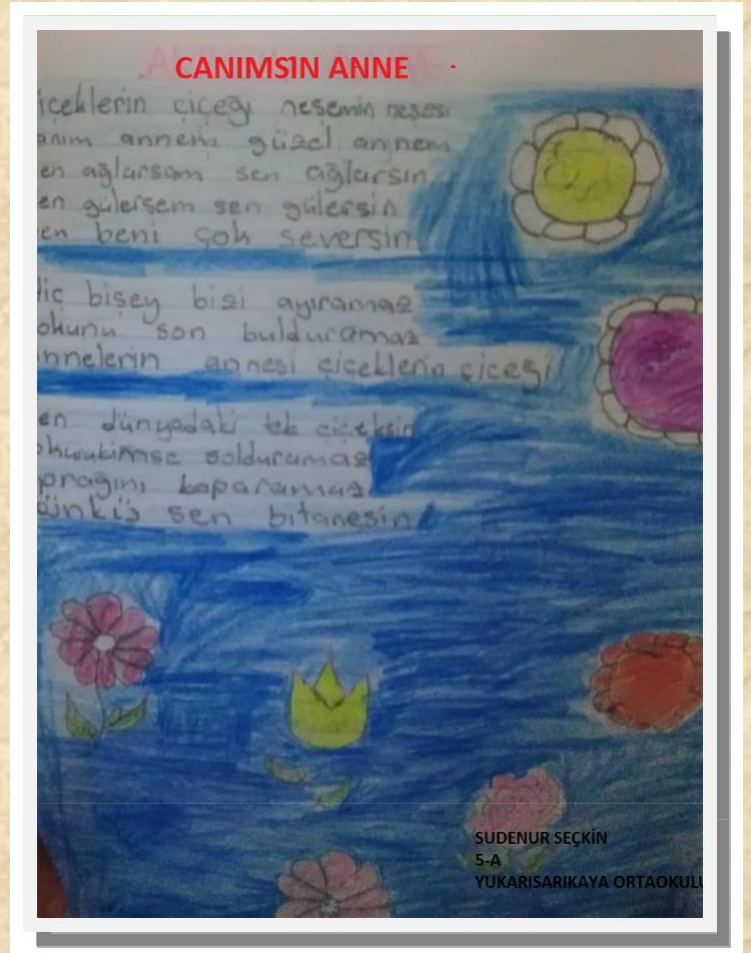 CANIMSIN ANNE
içeklerin çiçeği neşemin neşesi
anım annem güzel annem
en ağlarsam sen ağlarsın
en gülersem sen gülersin
en beni çok seversin
iç bişey bizi ayıramaz
okunu son bulduramaz
nnelerin annesi çiçeklerin çiçeği
en dünyadaki tek çiçeksin
solduramaz
prağını koparamaz
ünkü sen bitanesin
SUDENUR SEÇKİN
5-A
YUKARISARIKAYA ORTAOKULU